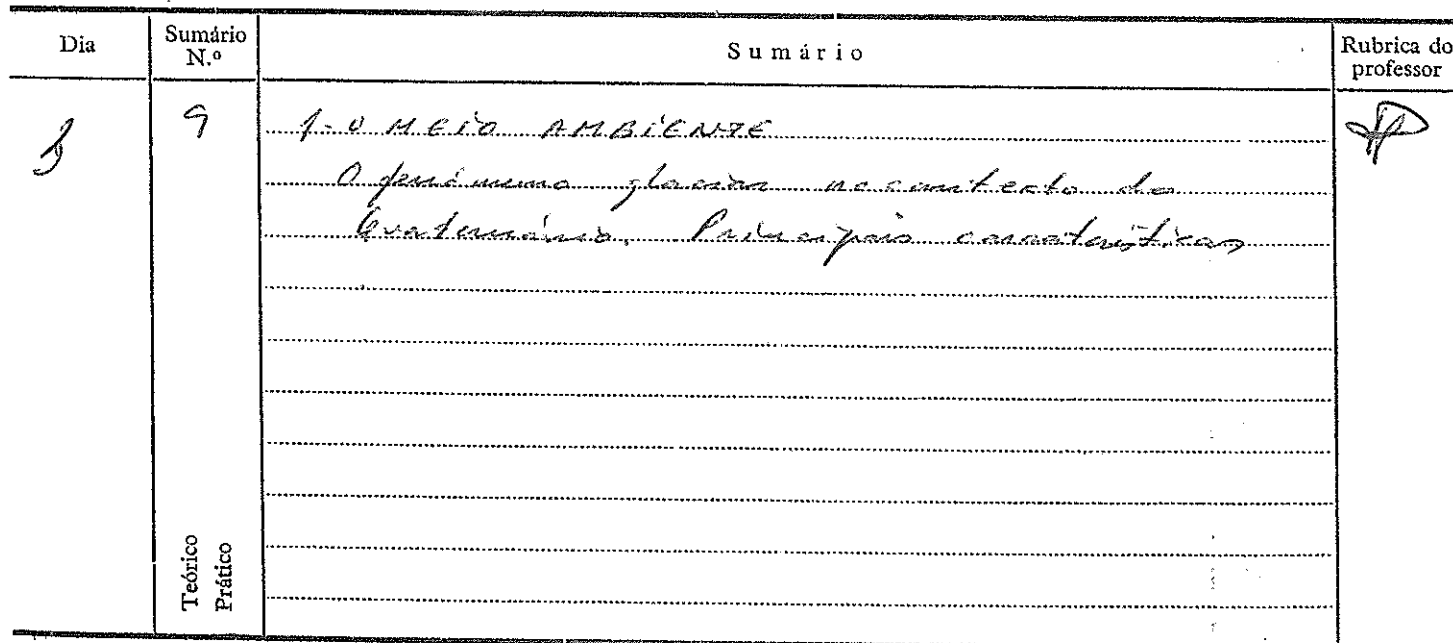 Dia
Sumário N.º
Sumário
Rubrica do professor
3
9
1-O MEIO AMBIENTE
O fenómeno glaciar no contexto do
Quaternário. Principais características
Teórico
Prático